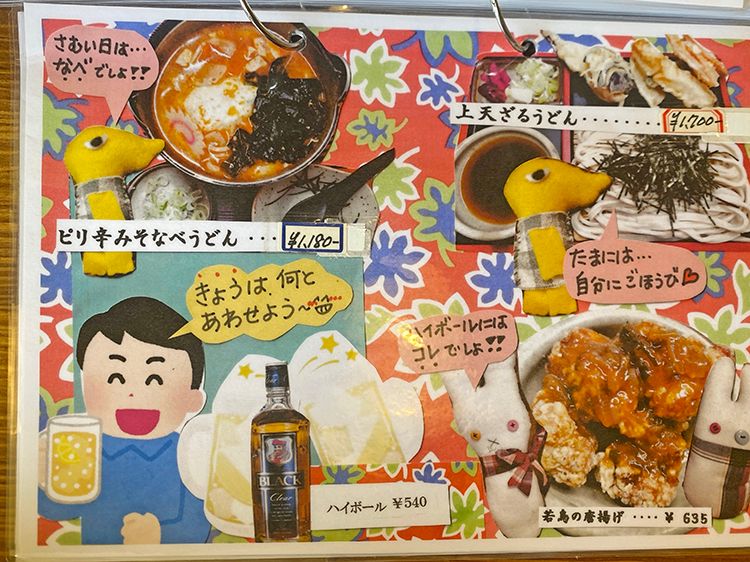 さむい日は…
なべでしょ!!
ピリ辛みそなべうどん ･･･ ¥1,180-
上天ざるうどん ････････ ¥1,700-
たまには…
自分にごほうび♡
きょうは、何と
あわせよう～
ハイボールには
コレでしょ!!
BLACK
Clear
ハイボール ¥540
若鳥の唐揚げ ････ ¥ 635